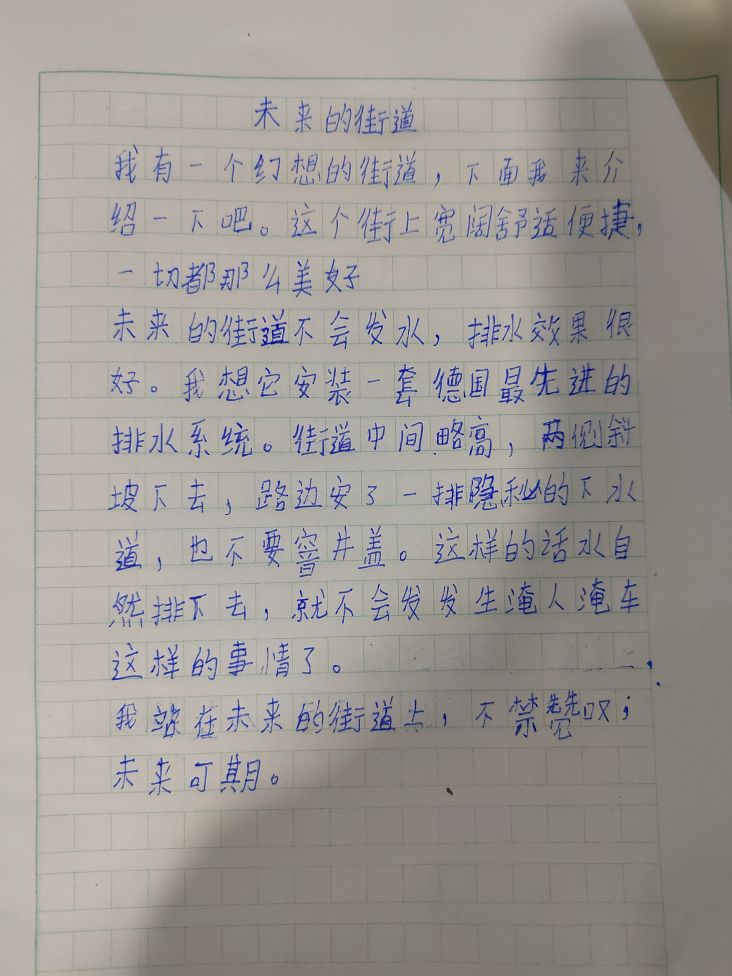 未来的街道
我有一个幻想的街道，下面我来介
绍一下吧。这个街上宽阔舒适便捷，
一切都那么美好
未来的街道不会发水，排水效果很
好。我想它安装一套德国最先进的
排水系统。街道中间略高，两侧斜
坡下去，路边安了一排隐秘的下水
道，也不要窨井盖。这样的话水自
然排下去，就不会发发生淹人淹车
这样的事情了。
我站在未来的街道上，不禁赞叹；
未来可期。